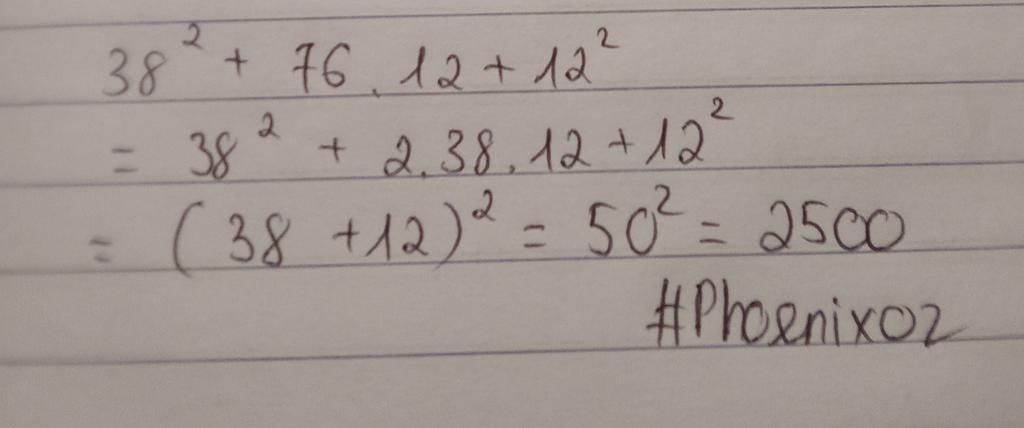 38² + 76.12 + 12²
= 38² + 2.38.12 + 12²
= (38 + 12)² = 50² = 2500
#Phoenix02